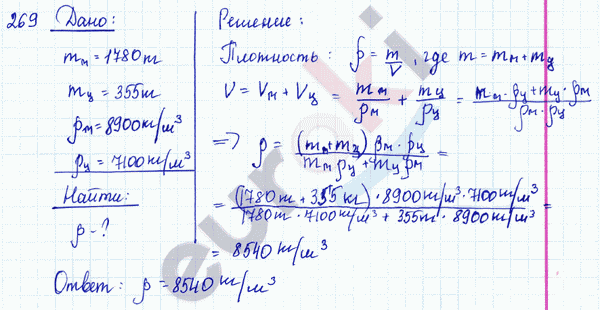 269 Дано:
m м = 1780 т
m ц = 355 т
ρ м = 8900 кг/м³
ρ ц = 7100 кг/м³
Найти:
ρ - ?
Решение:
Плотность: ρ = m/V, где m = m м + m ц
V = V м + V ц = m м/ρ м + m ц/ρ ц = (m м · ρ ц + m ц · ρ м)/(ρ м · ρ ц)
=> ρ = ((m м + m ц) ρ м · ρ ц)/(m м ρ ц + m ц ρ м) =
= ((1780 т + 355 кг) · 8900 кг/м³ · 7100 кг/м³)/(1780 т · 7100 кг/м³ + 355 т · 8900 кг/м³) =
= 8540 кг/м³
Ответ: ρ = 8540 кг/м³
euroki